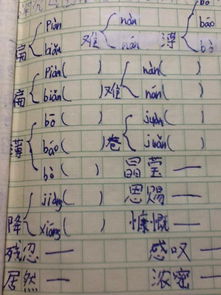 扁 piān biǎn 难 nán nàn 薄 bó báo bò
扁 piān( ) biǎn( ) 难 nàn( ) nán( )
薄 bó( ) báo( ) bò( ) 卷 juàn( ) juǎn( )
晶莹一
降 jiàng( ) xiáng( ) 恩赐一
慷慨一
残忍一 感叹一
居然一 浓密一